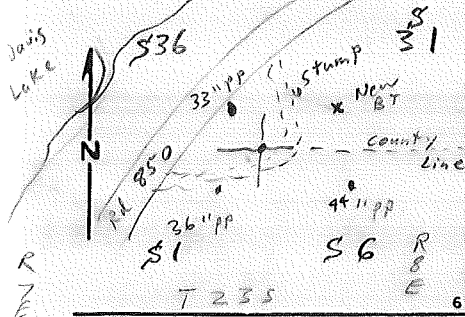 Davis
Lake
S36
S
31
33"pp
Stump
New
BT
N
County
Line
Rd 850
36"pp
44"pp
S1
S6
R
7
E
R
8
E
T 23S
6